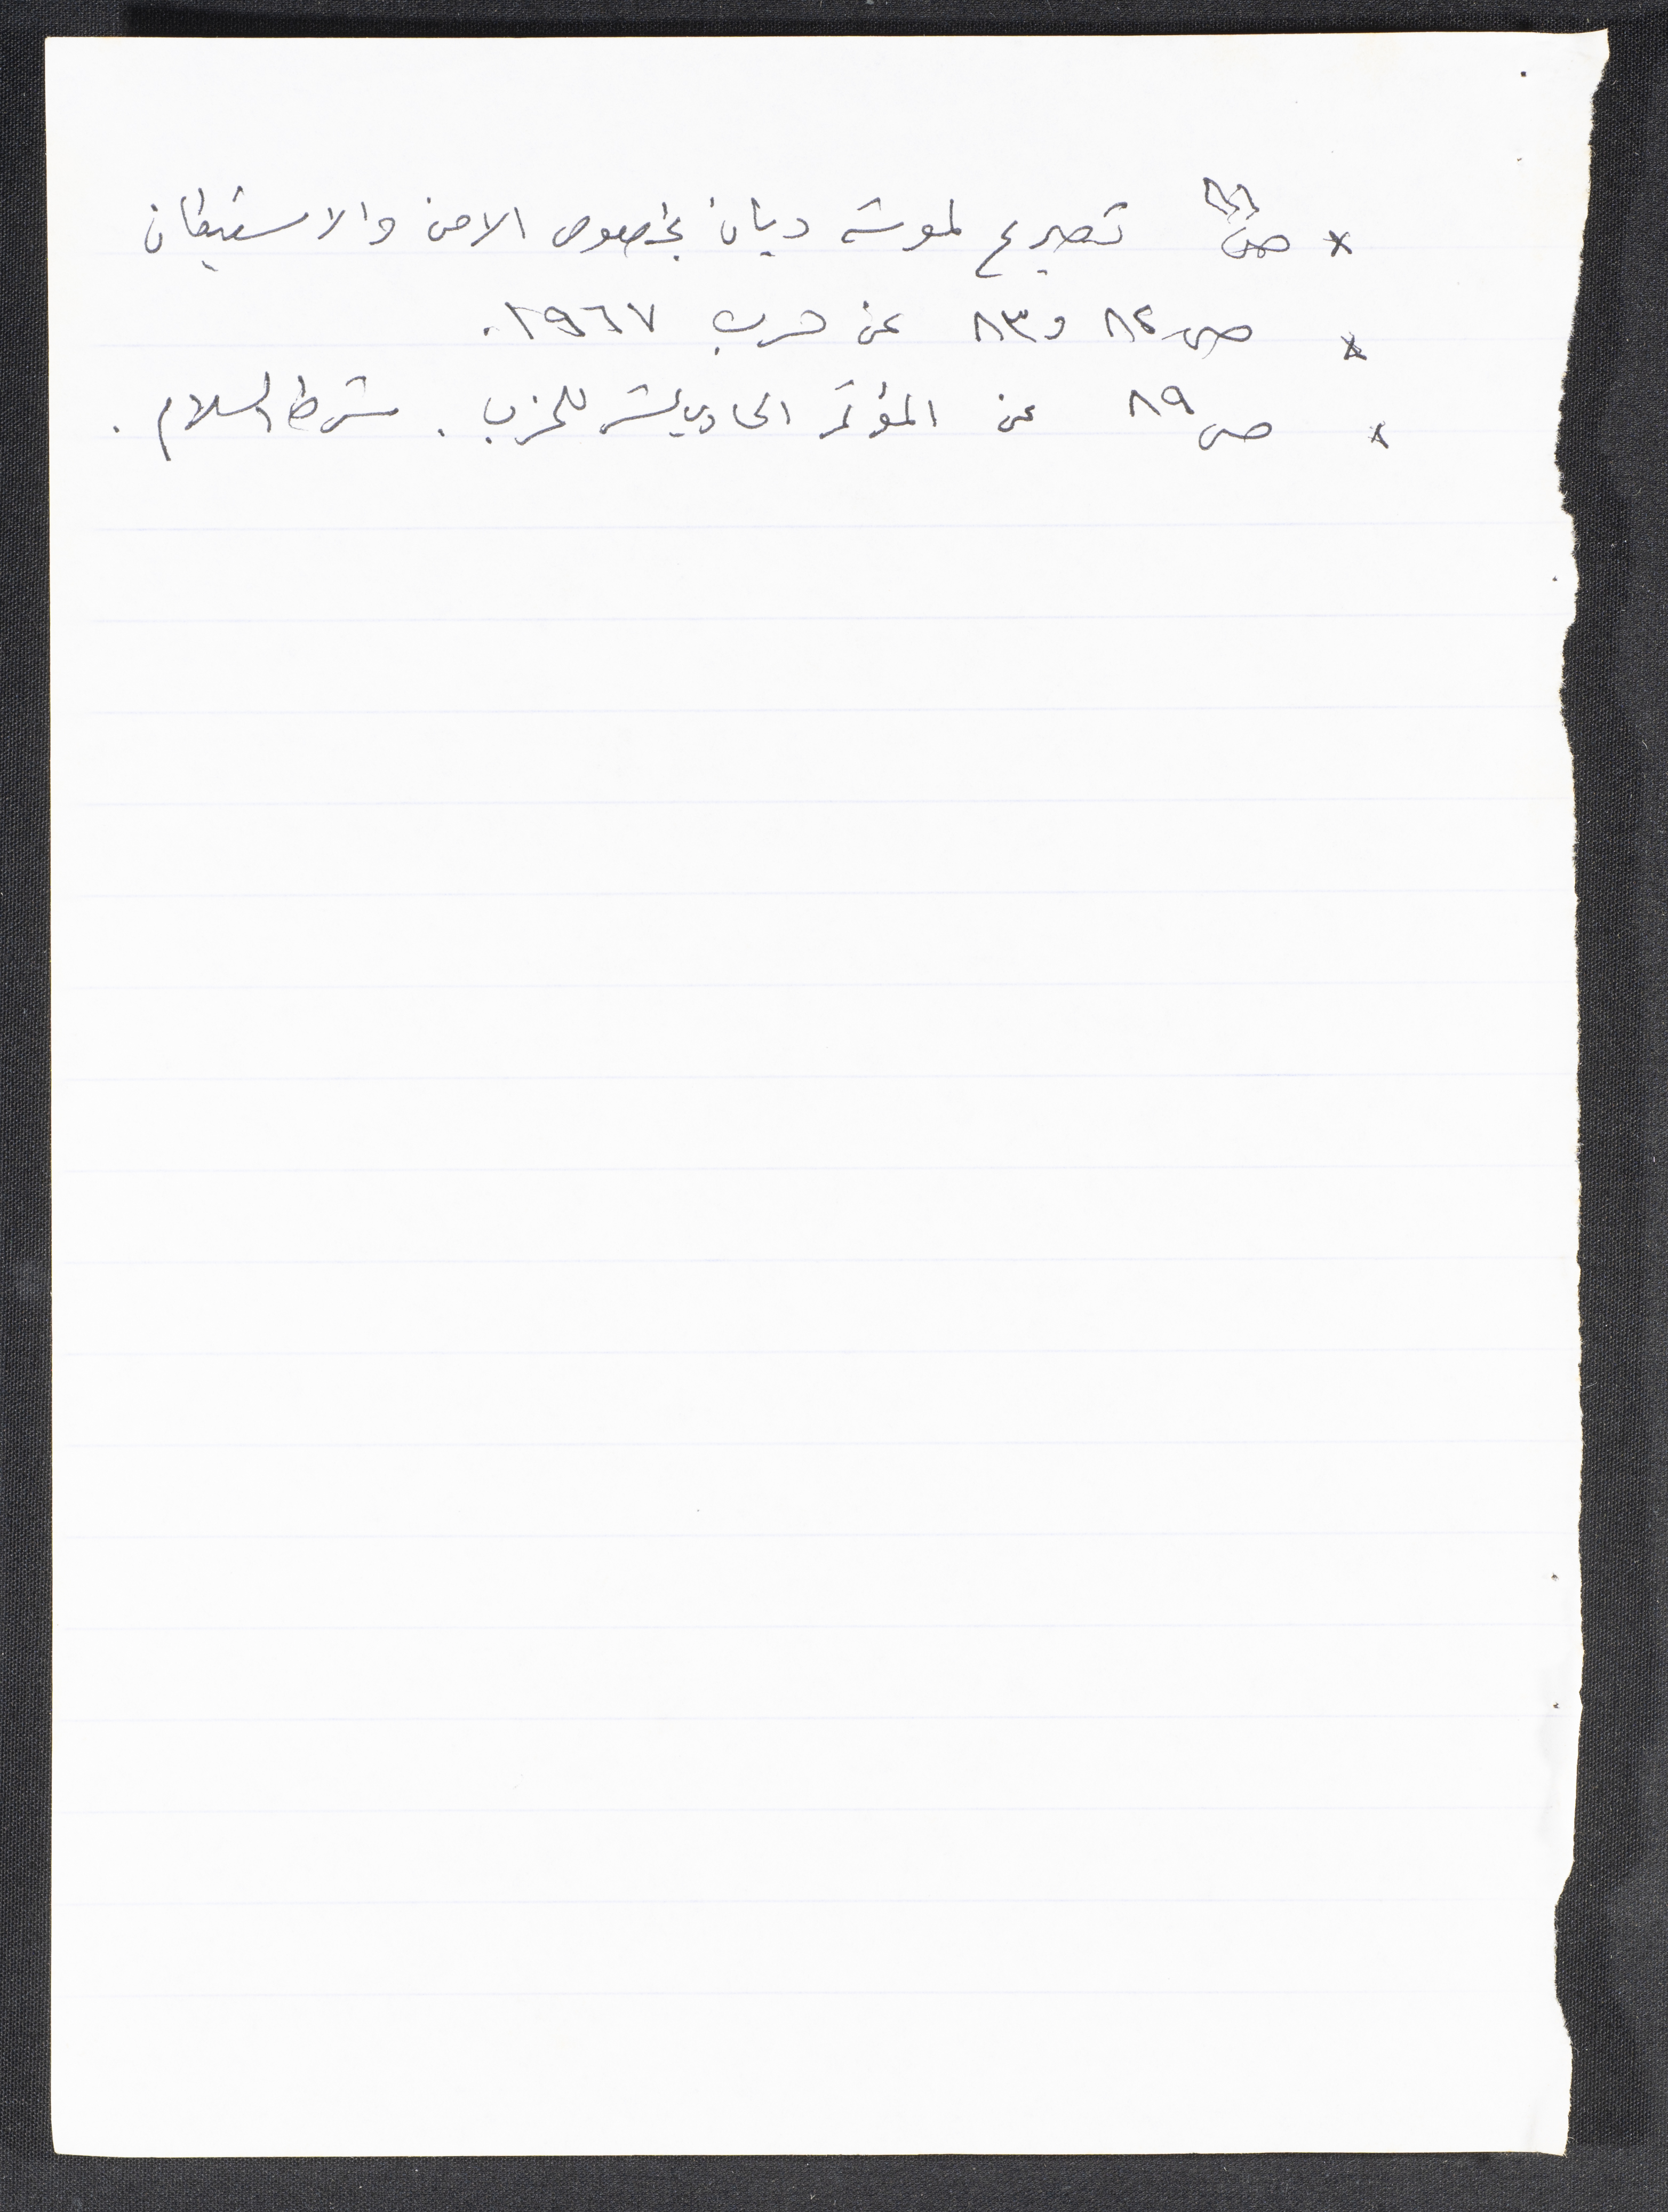 * ص٨٨ تصريح لموشه ديان بخصوص الامن والاستيطان
* ص ٨٢ و٨٣ عن حرب ١٩٦٧.
* ص ٨٩ عن المؤتمر الحادي عشر للحزب. شرط السلام.